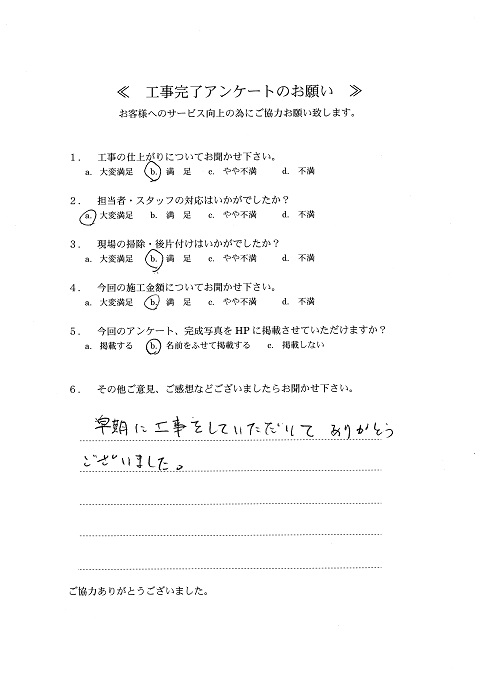 ≪ 工事完了アンケートのお願い ≫
お客様へのサービス向上の為にご協力お願い致します。
１． 工事の仕上がりについてお聞かせ下さい。
a. 大変満足 b. 満 足 c. やや不満 d. 不満
２． 担当者・スタッフの対応はいかがでしたか？
a. 大変満足 b. 満 足 c. やや不満 d. 不満
３． 現場の掃除・後片付けはいかがでしたか？
a. 大変満足 b. 満 足 c. やや不満 d. 不満
４． 今回の施工金額についてお聞かせ下さい。
a. 大変満足 b. 満 足 c. やや不満 d. 不満
５． 今回のアンケート、完成写真を HP に掲載させていただけますか？
a. 掲載する b. 名前をふせて掲載する c. 掲載しない
６． その他ご意見、ご感想などございましたらお聞かせ下さい。
早期に工事をしていただいて ありがとう
ございました。
ご協力ありがとうございました。